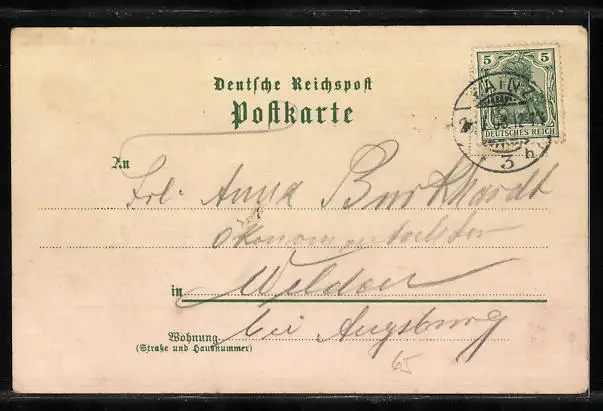 5 5
DEUTSCHES REICH
MAINZ
3
Deutsche Reichspost
Postkarte
An
Frl. Anna Burkhardt
in Welden
bei Augsburg
Wohnung
(Straße und Hausnummer)
65